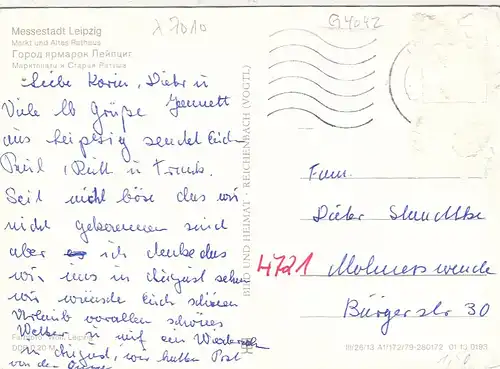 λ 7010
G4042
Messestadt Leipzig
Markt und Altes Rathaus
Город ярмарок Лейпциг
Маркетплац и Старая Ратуша
Liebe Karin, Dieter u
Jennett
Viele lb Grüße
aus Leipzig sendet Euch
Ruth u Frank.
Seit nicht böse das wir
nicht gekommen sind
aber ich denke das
wir uns in August sehen
wir wünsche Euch schönen
Urlaub vorallen schönes
Wetter u auf ein Wiedersehn
in August, wir hatten Post
von der
BILD UND HEIMAT · REICHENBACH (VOGTL)
Fam.
Dieter
4721 Molmerswende
Bürgerstr 30
DDR 0,20 M
III/26/13 A1/172/79-280172 01 13 0193
1,50